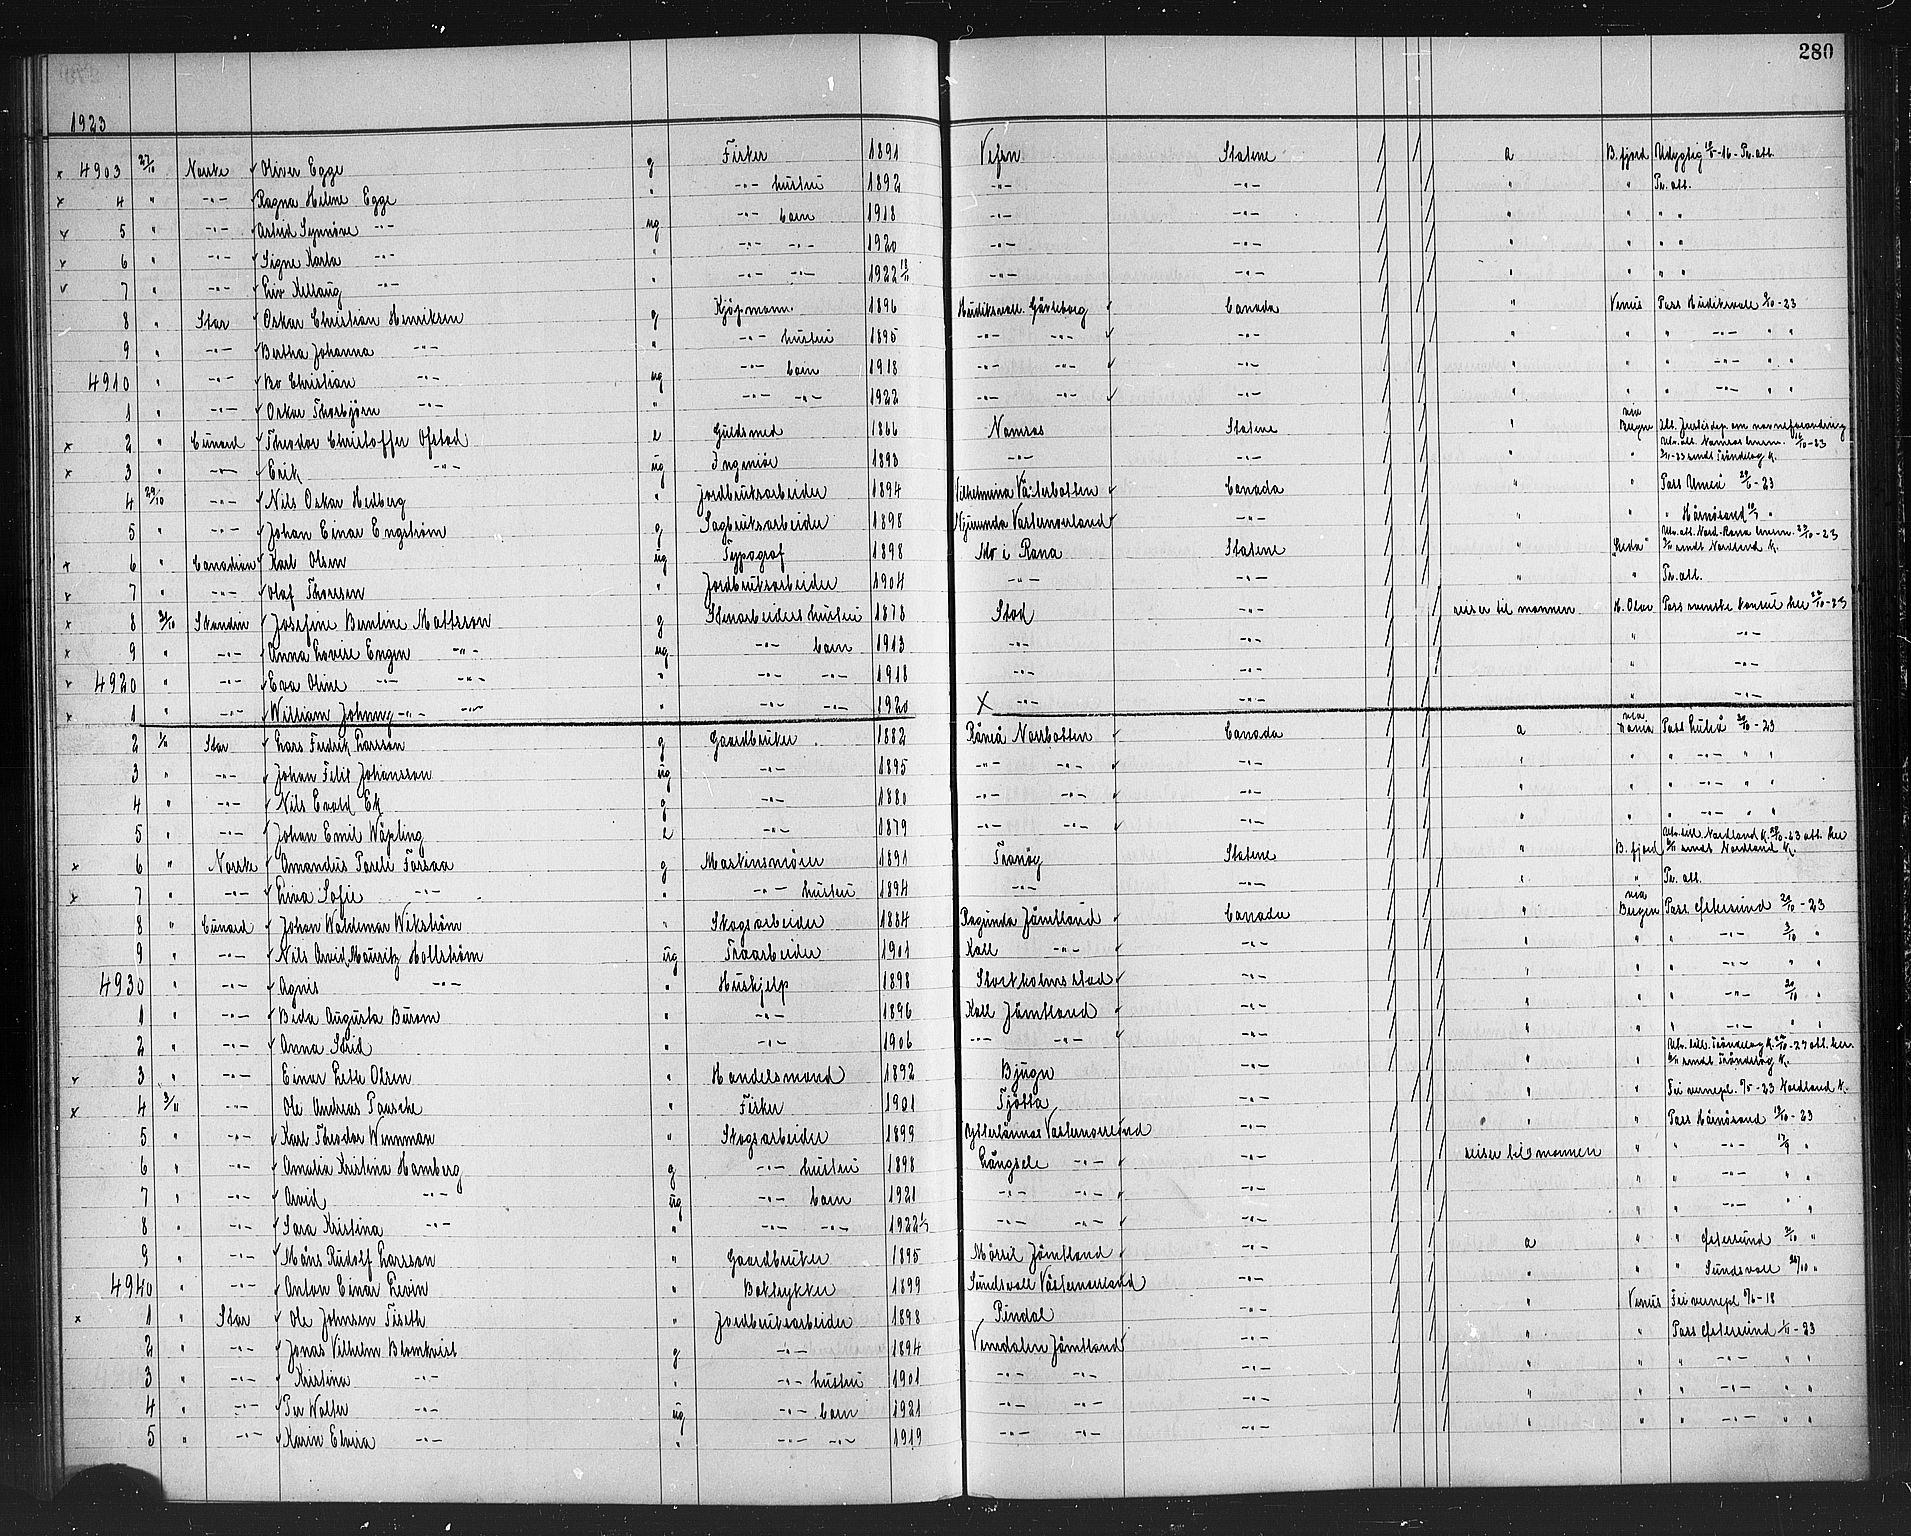 280
1923
x 4903 27/10 Norske Oliver Egge g Fisker 1891 Vefsn Statene a B. fjord Udygtig 12/5-16 - Pr. att.
x 4 " -"- Ragna Helene Egge " -"- hustru 1892 -"- -"- " " Pr. att.
v 5 " -"- Astrid Synnöve -"- ug -"- barn 1918 -"- -"- " " " "
v 6 " -"- Signe Karla -"- " -"- -"- 1920 -"- -"- " " " "
v 7 " -"- Liv -"- " -"- -"- 1922 -"- -"- " " " "
8 " Star Oskar Christian Henriksen g Kjöpmann 1896 Hudiksvall Gävleborg Canada " Venus Pass Hudiksvall 2/10-23
9 " -"- Bertha Johanna -"- " -"- hustru 1895 -"- -"- -"- " " " -"- " "
4910 " -"- Bo Christian -"- ug -"- barn 1918 -"- -"- -"- " " " -"- " "
1 " -"- Oskar Thorbjörn -"- " -"- -"- 1922 -"- -"- -"- " " " -"- " "
x 2 " Cunard Theodor Christoffer Ofstad e Guldsmed 1866 Namsos Statene " via Bergen Att. Justisdep. om navneforandring
Utv. att. Namsos 16/10-23
x 3 " -"- Erik -"- ug Ingeniör 1893 -"- -"- " " sendt Tröndelag K.
4 29/10 -"- Nils Oskar Hedberg " jordbruksarbeider 1894 Vilhelmina Västerbotten Canada " " Pass Umeå 28/6-23
5 " -"- Johan Einar Engström g Sagbruksarbeider 1898 Västernorrland -"- " " " Härnösand "
x 6 " Canadian Karl Olsen ug Typograf 1898 Mo i Rana Statene " "Leda" Utv. att. Nord-Rana 23/10-23
sendt Nordland K.
v 7 " -"- Olaf Thoresen " Jordbruksarbeider 1904 -"- -"- " " Pr. att.
x 8 31/10 Skandin Josefine Berntine Mattsson g Stenarbeiders hustru 1878 Stod -"- reiser til mannen H. Olav Pass svenske konsul her 22/10-23
x 9 " -"- Anna Lovise Engen -"- ug -"- barn 1913 -"- -"- " -"-
v 4920 " -"- Eva Oline -"- -"- " -"- -"- 1918 -"- -"- " -"-
x 1 " -"- William Johnny -"- -"- " -"- -"- 1920 X -"- -"- " -"-
2 1/11 Star Lars Fredrik Larsson g Gaardbruker 1882 Råneå Norrbotten Canada a via Pass Luleå 20/10-23
3 " -"- Johan Felix Johansson ug -"- 1895 -"- -"- -"- " " " -"- " "
4 " -"- Nils Evald Ek g -"- 1880 -"- -"- -"- " " " -"- " "
5 " -"- Johan Emil Wäpling e -"- 1879 -"- -"- -"- " " " -"- " "
x 6 " Norske Amandus Pareli Forsaa g Maskinsmörer 1891 Tranöy Statene " B. fjord Utv. till. Nordland K. 29/10-23 att. her
sendt Nordland K.
x 7 " -"- Livia Sofie -"- " -"- hustru 1894 -"- -"- " " Pr. att.
8 " Cunard Johan Waldemar Wikström " Skogsarbeider 1884 Ragunda Jämtland Canada " via Bergen Pass Östersund 20/10-23
9 " -"- Nils Arvid Mauritz Hollström ug Træarbeider 1901 Kall -"- -"- " " " -"- 3/10 "
4930 " -"- Agnes -"- " Huskjelp 1898 Stockholms stad -"- " " " -"- " "
1 " -"- Beda Augusta Burom " -"- 1896 Kall Jämtland -"- " " " -"- 20/10 "
2 " -"- Anna Strid " -"- 1906 -"- -"- -"- " " " -"- " "
v 3 " -"- Einar Leth Olsen " Handelsmand 1892 Bjugn -"- " " Utv. till. Tröndelag K. att. her.
sendt Tröndelag K.
x 4 2/11 -"- Ole Andreas Paasche " Fisker 1901 Tjötta -"- " " Fri vernepl. 7/5-23 Nordland K.
5 " -"- Karl Theodor Wennman " Skogsarbeider 1899 Ytterlännäs Västernorrland -"- " " Pass Härnösand 13/10-23
6 " -"- Amalia Kristina Hamberg g -"- hustru 1898 Långsele -"- -"- reiser til mannen " " -"- 17/9 "
7 " -"- Arvid -"- ug -"- barn 1921 -"- -"- -"- " " -"- " "
8 " -"- Sara Kristina -"- " -"- -"- 1922 -"- -"- -"- " " -"- " "
9 " -"- Måns Rudolf Larsson " Gaardbruker 1895 Mörsil Jämtland -"- a " " Östersund 2/10 "
4940 " -"- Anton Einar Levin " Boktrykker 1899 Sundsvall Västernorrland -"- " " " Sundsvall 24/10 "
x 1 " Star Ole Johnsen Fiseth " Jordbruksarbeider 1898 Rindal -"- " Venus Fri vernepl 7/6-18
2 " -"- Jonas Vilhelm Blomkvist g -"- 1894 Vemdalen Jämtland -"- " " Pass Östersund 1/11-23
3 " -"- Kristina -"- " -"- hustru 1901 -"- -"- -"- " " " -"- " "
4 " -"- Per Walter -"- ug -"- barn 1921 -"- -"- -"- " " " -"- " "
5 " -"- Karin Elvira -"- " -"- -"- 1919 -"- -"- -"- " " " -"- " "